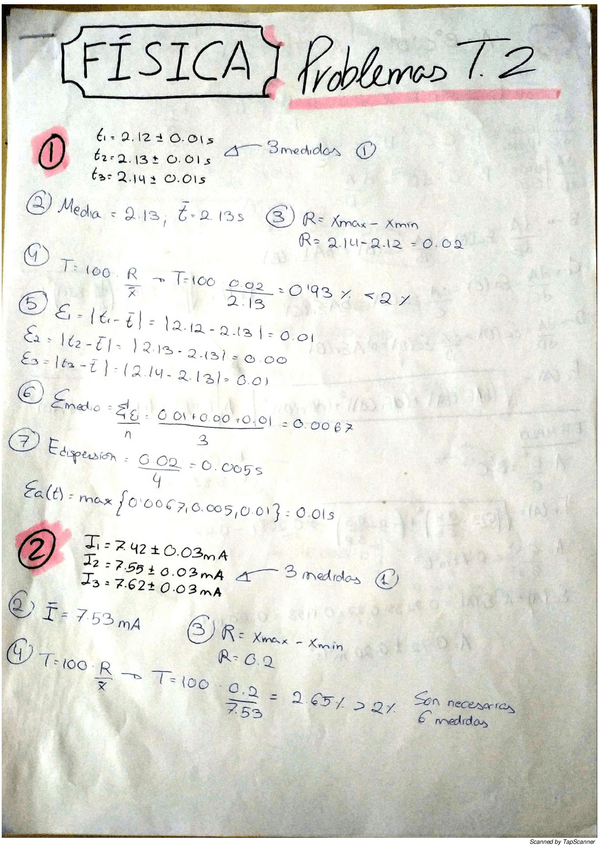 FÍSICA Problemas T.2
1
t1 = 2.12 ± 0.01s
t2 = 2.13 ± 0.01s
t3 = 2.14 ± 0.01s
3 medidas ①
② Media = 2.13; t̄ = 2.13s
③ R = Xmax - Xmin
R = 2.14 - 2.12 = 0.02
④ T = 100 · R/x̄ → T = 100 · 0.02/2.13 = 0'93 % < 2 %
⑤ Ɛ1 = |t1 - t̄| = |2.12 - 2.13| = 0.01
Ɛ2 = |t2 - t̄| = |2.13 - 2.13| = 0.00
Ɛ3 = |t3 - t̄| = |2.14 - 2.13| = 0.01
⑥ Ɛmedio = ΣƐ/n = 0.01 + 0.00 + 0.01/3 = 0.0067
⑦ Edispersion = 0.02/4 = 0.005s
Ea(t) = max {0'0067, 0.005, 0.01} = 0.01s
2
I1 = 7.42 ± 0.03 mA
I2 = 7.55 ± 0.03 mA
I3 = 7.62 ± 0.03 mA
3 medidas ①
② Ī = 7.53 mA
③ R = Xmax - Xmin
R = 0.2
④ T = 100 · R/x̄ → T = 100 · 0.2/7.53 = 2.65 % > 2 %
Son necesarias
6 medidas
Scanned by TapScanner